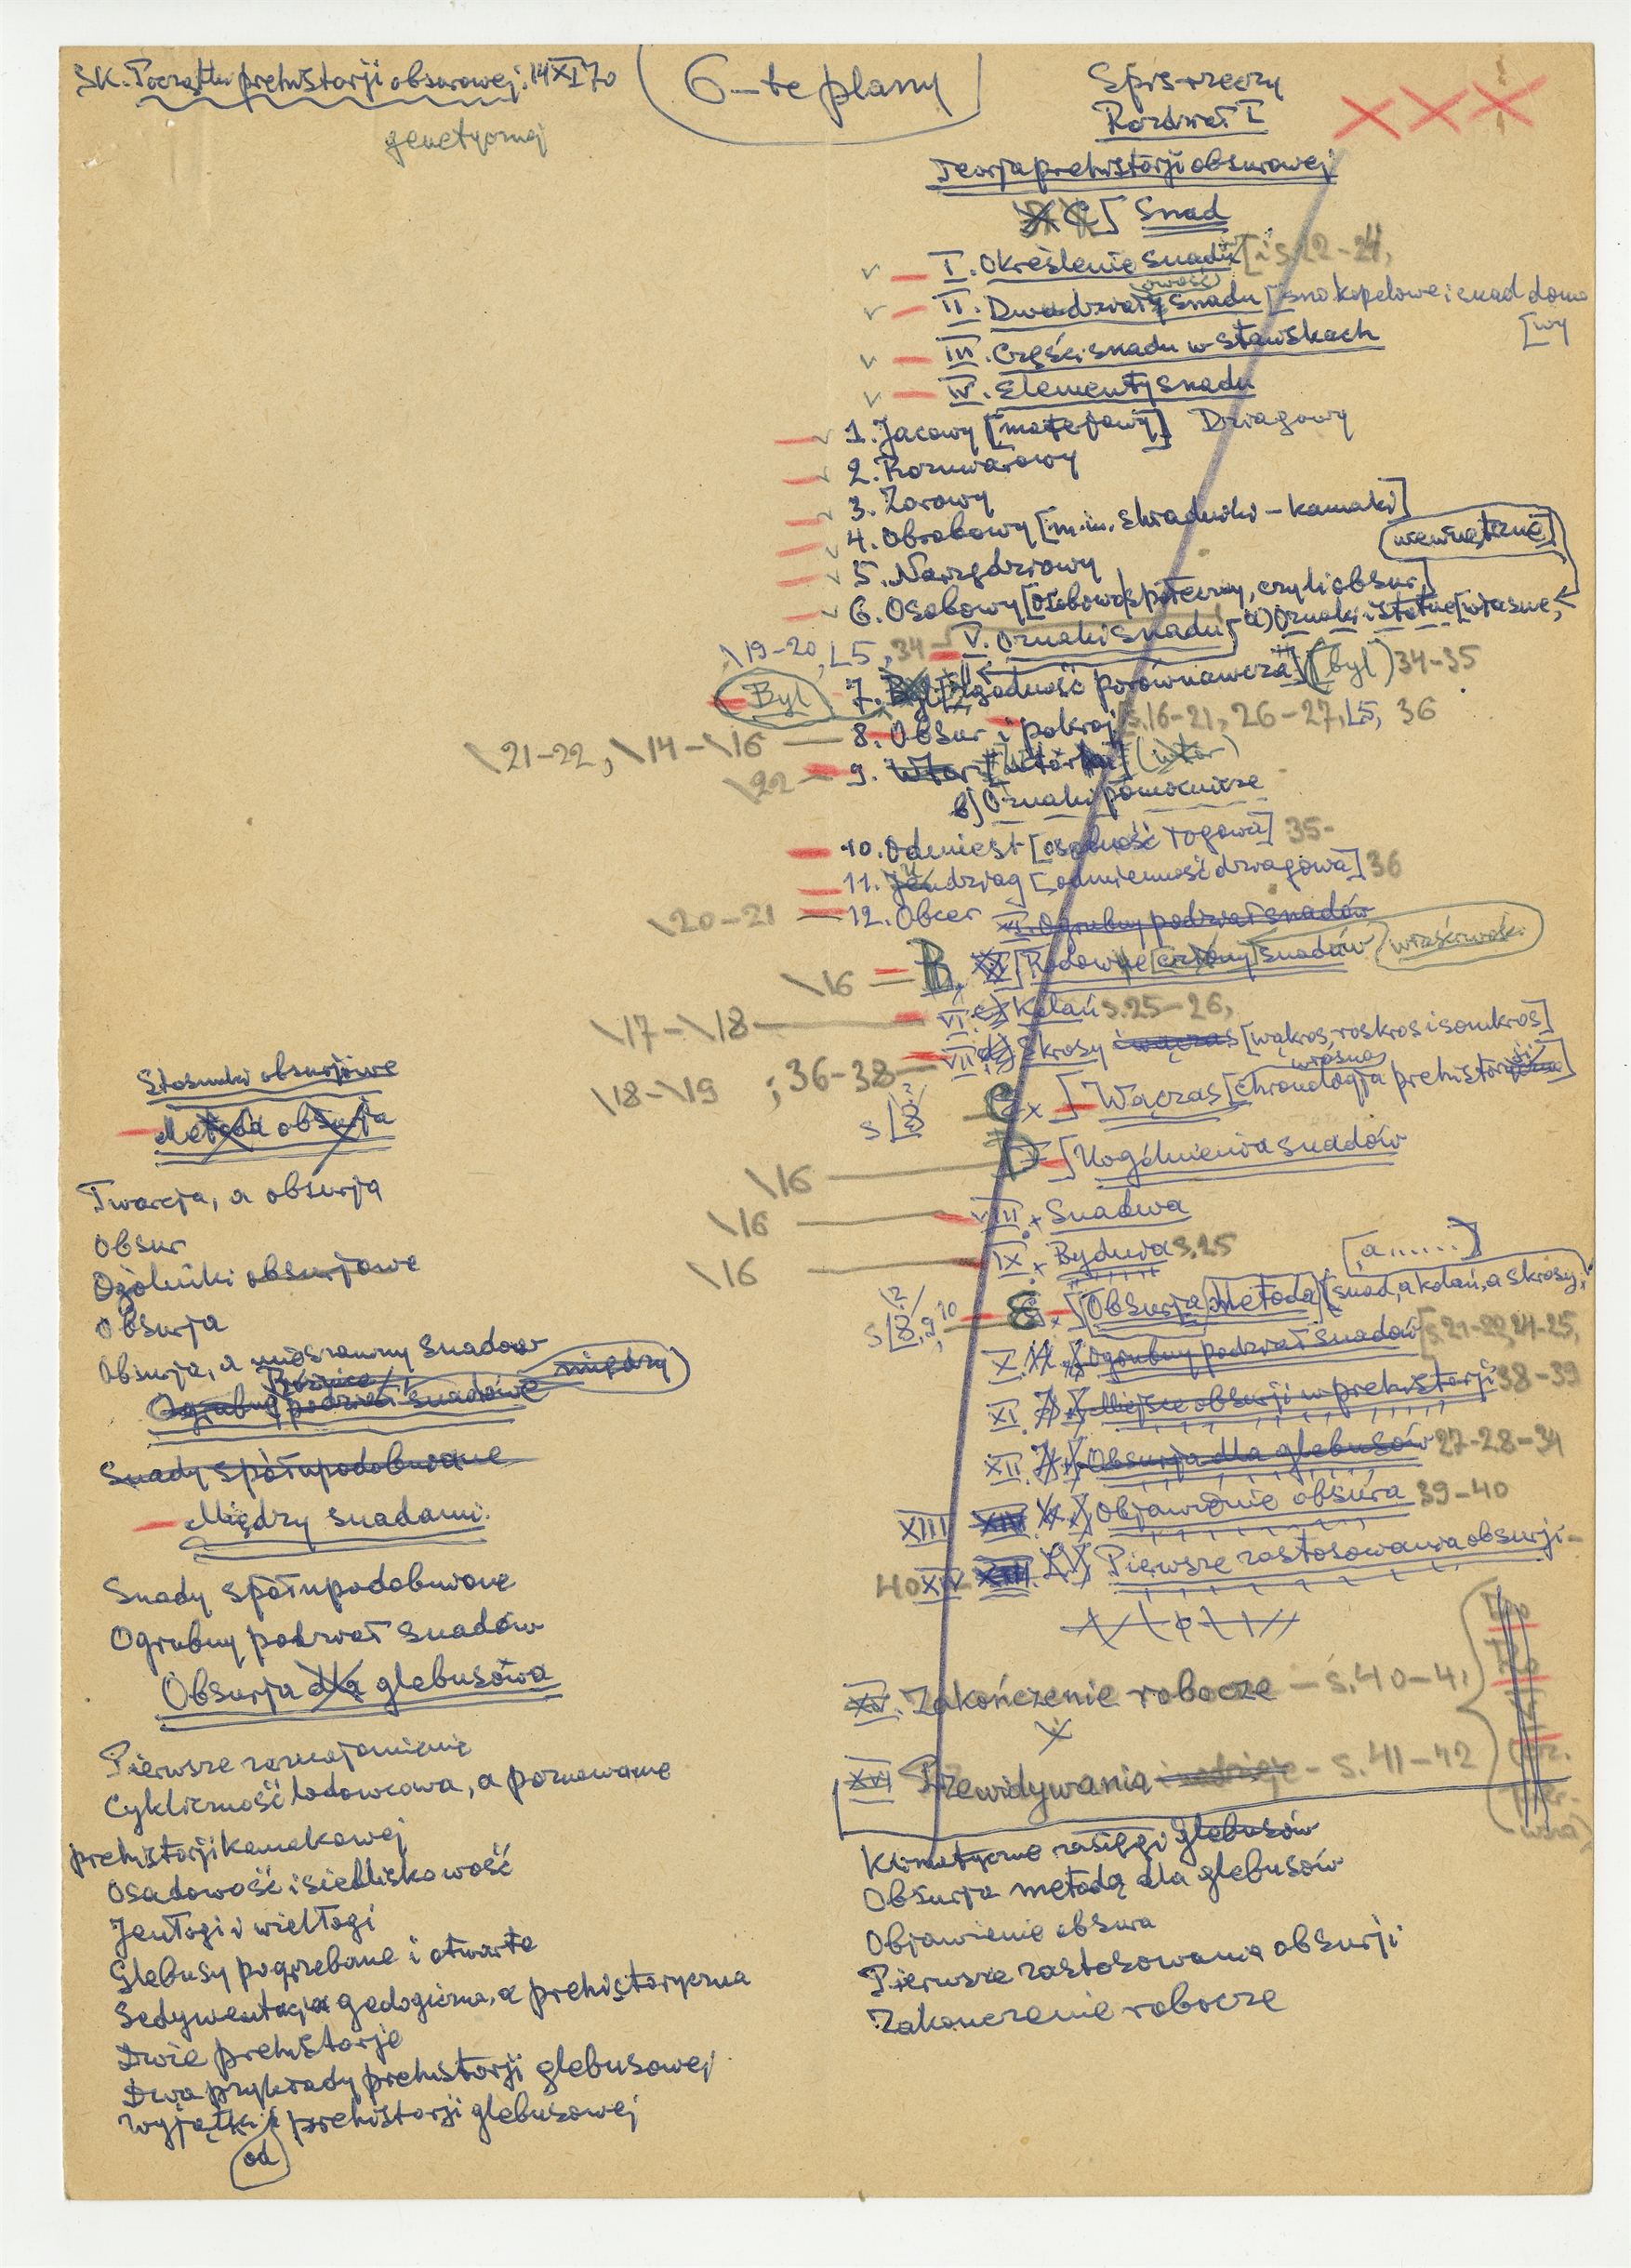 SK. Początki prehistorji obsurowej. 14 XI 70
genetycznej
6-te plany
Spis rzeczy
Rozdział I
Teorja prehistorji obsurowej
Snad
I. Określenie snadu [i s. 22-24,
II. Dwudział snadu [snokopelowe i snad domo
[wy
III. Części snadu w stawskach
IV. Elementy snadu
1. Jacowy [materjowy] Dziagowy
2. Rozmiarowy
3. Zorowy
4. Obrobowy [m.in. skraduiki - kamaki]
5. Narzędziowy
wewnętrzne]
6. Osobowy [osobowospołeczny, czyli obsur]
\19-20, L5, 34 V. Oznaki snadu a) Oznaki istotne [własne,
Byl 7. zgodność porównawcza] (byl) 34-35
\21-22, \14-\16 — 8. Obsur i pokroj [s. 16-21, 26-27, L5, 36
\22 — 9. (wtór)
b) Oznaki pomocnicze
10. Odmiest [osobność togowa] 35-
11. Judziag [odmienność dziagowa] 36
\20-21 — 12. Obcer
VI. Ogrubny podział snadów
\16 = B. Rodowne snadów właściwości
\17-\18 — VI. Kolań s. 25-26,
\18-\19 ; 36-38 — VII. Skrosy i wączas [wąkros, roskros i somkros]
własna
C ] Wączas [chronologja prehistorji]
\16 — D ] Uogólnienia snadów
\16 — VIII. Snadwa
\16 — IX. Bydwia s. 25
[, a ......]
E. Obsurja metodą [snad, a kolań, a skrosy,
X. Ogrubny podział snadów [s. 21-22, 24-25,
XI. Miejsce obsurji w prehistorji 38-39
XII. Obsurja dla glebusów 27-28-34
XIII XIV Objawienie obsura 39-40
40 XIV XIII. Pierwsze zastosowania obsurji-
XV. Zakończenie robocze — s. 40-41
XVI Przewidywania i nadzieje - s. 41-42
Klimatyczne zasięgi glebusów
Obsurja metodą dla glebusów
Objawienie obsura
Pierwsze zastosowania obsurji
Zakonczenie robocze
Stosunki obsurjowe
Metoda obsurja
Twarcja, a obsurja
Obsur
Ogólniki obsurjowe
Obsurja
Obsurja, a mieszanny snadow
Różnice
Ogrubny podział snadowe między
Snady spółupodobniane
Między snadami.
Snady spółupodobnione
Ogrubny podział snadów
Obsurja dla glebusowa
Pierwsze zaznajomienie
Cykliczność lodowcowa, a poznawanie
prehistorji kamakowej
Osadowość i siedliskowość
Jeutogi i wieltogi
Glebusy pogrzebane i otwarte
Sedymentacja geologiczna, a prehistoryczna
Dwie prehistorje
Dwa przykłady prehistorji glebusowej
Wyjątki prehistorji glebusowej
od